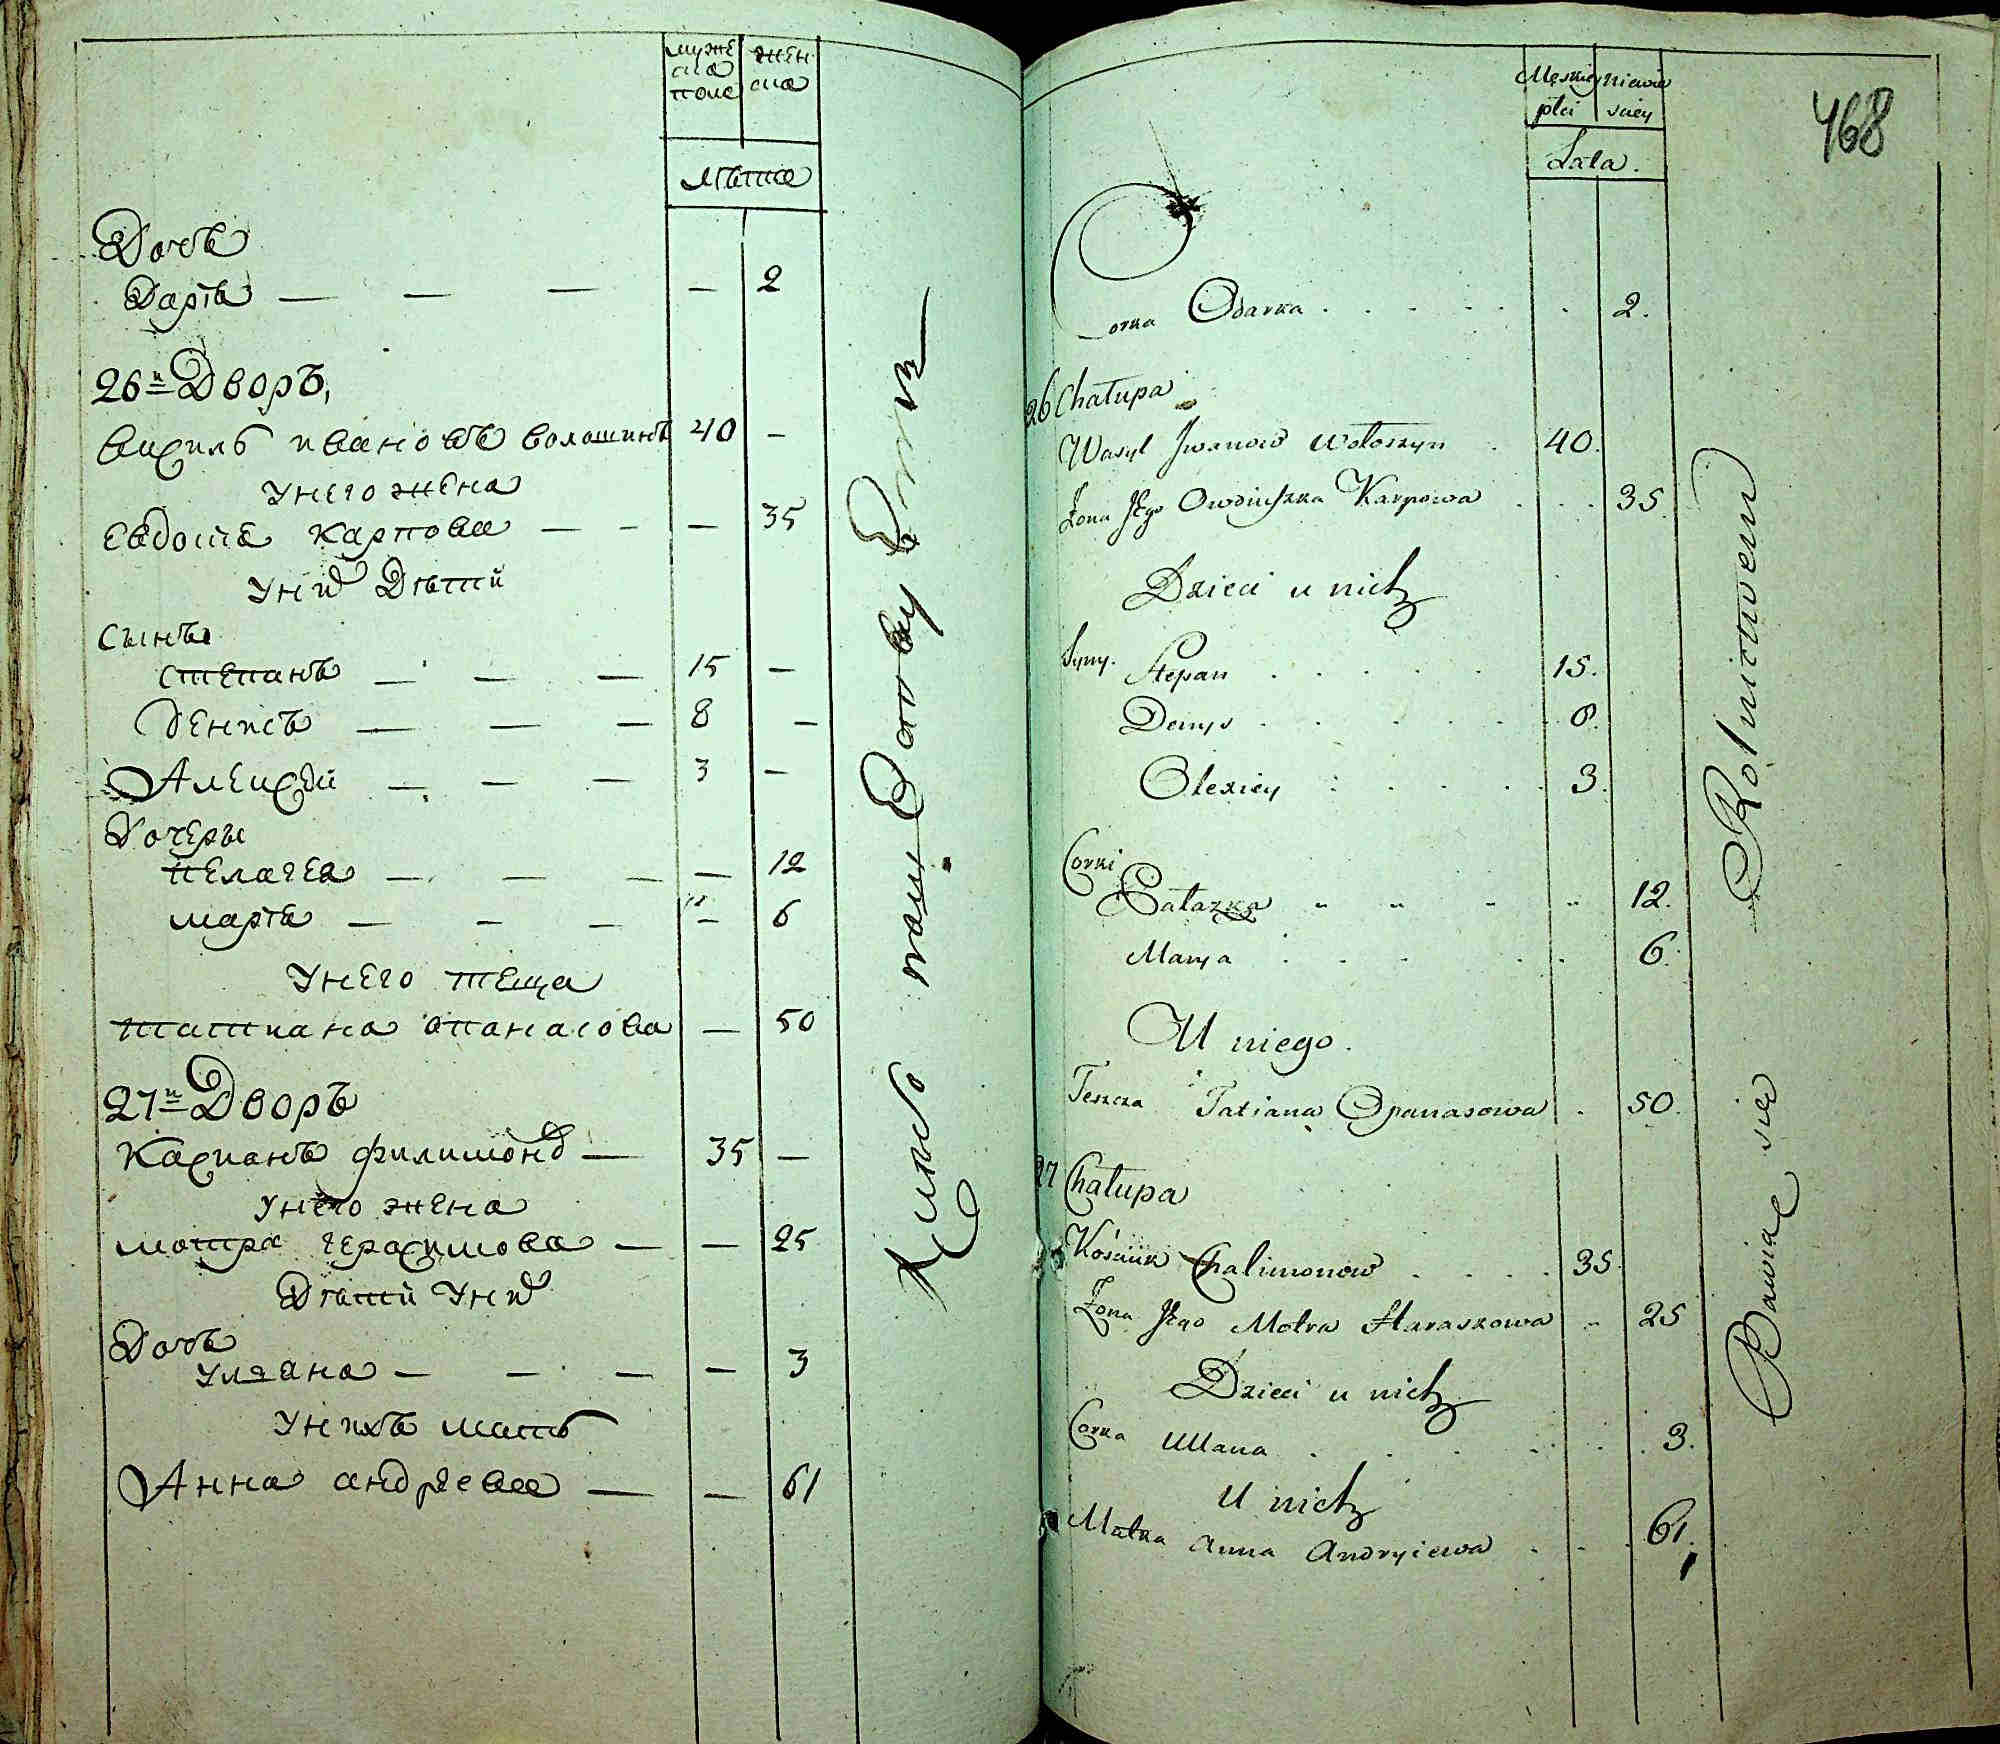 муже
ска
пола
жен
ска
Лѣта
Дочь
Дарья — — — — 2
26й Дворъ,
Василь ивановъ волошинъ 40 —
У него жена
Евдотя Карпова — — — 35
У них Дѣтй
Сынъ
степанъ — — — 15 —
Денисъ — — — 8 —
Алексей — — — 3 —
Дочеры
пелагея — — — — 12
марья — — — — 6
У него теща
татиана опанасова — 50
27й Дворъ
Касианъ филимонов — 35 —
У него жена
мотра герасимова — — 25
Дѣтй У них
Дочь
Уляана — — — — 3
У нихъ мать
Анна андреева — — 61
468
Męskiej
płci
niewie
sciey
Lata.
Corka Odarka . . . . . . 2.
26 Chałupa
Wasyl Iwanow Wołoszyn . 40.
Żona Jego Owdiuszka Karpowa . . . 35.
Dzieci u nich
Syny. Stepan . . . . . 15.
Demys . . . . . . 8.
Olexiey . . . . . 3.
Corki
Pałazka " " " " 12.
Marya . . . . . 6.
U niego.
Tescza Tatiana Opanasowa . 50.
27 Chałupa
Kośćiuk Chalimonow . . . . 35.
Żona Jego Motra Haraskowa .. 25
Dzieci u nich
Corka Ullana . . . . . . . 3.
U nich
Matka Anna Andryiewa . . . 61.
Bawiąc sie Rolnictwem